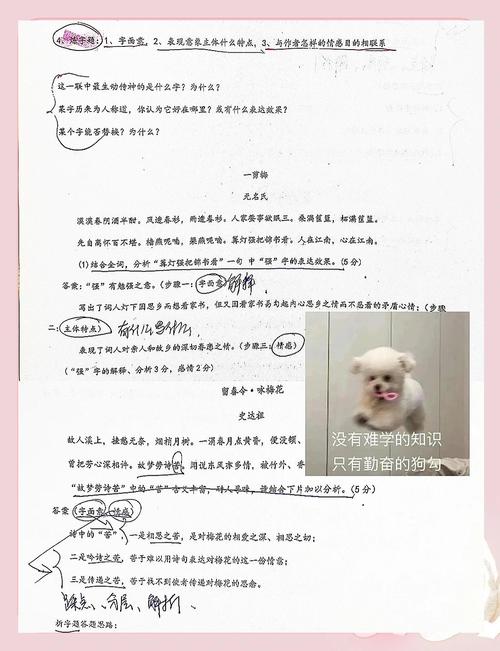 4、炼字题：1、字面意，2、表现意象主体什么特点，3、与作者怎样的情感目的相联系
这一联中最生动传神的是什么字？为什么？
某字历来为人称道，你认为它好在哪里？或有什么表达效果？
某个字能否替换？为什么？
一剪梅
无名氏
漠漠春阴酒半酣。风透春衫，雨透春衫。人家蚕事欲眠三。桑满筐篮，柘满筐篮。
先自离怀百不堪。樯燕呢喃，梁燕呢喃。篝灯强把锦书看。人在江南，心在江南。
(1)结合全词，分析“篝灯强把锦书看”一句 中“强”字的表达效果。(5分)
答案：“强”有勉强之意。(步骤一：字面意) 解释
写出了词人灯下因思乡而想看家书，但又因看家书易勾起内心思乡之情而不忍看的矛盾心情；(步骤
二：主体特点)
表现了词人对亲人和故乡的深切眷恋之情。(步骤三：情感)
(“强”字的解释、分析3分，感情2分)
留春令·咏梅花
史达祖
故人溪上，挂愁无奈，烟梢月树。一涓春月点黄昏，便没顿、
曾把芳心深相许。故梦劳诗苦。闻说东风亦多情，被竹外、香
“故梦劳诗苦”中的“苦”含义丰富，耐人寻味，请结合下片加以分析。(5分)
答案 (字面意+情感)
诗中的“苦”：一是相思之苦，是对梅花的相爱之深、相思之切；
二是吟诗之苦，苦于难以用诗句表达对梅花的这一份情意；
三是传递之苦，苦于找不到使者传递对梅花的思念。
踩点、分层、解析
析字题答题思路：
没有难学的知识
只有勤奋的狗勾